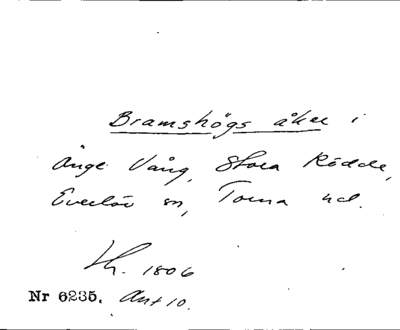 Bramshögs åker i
Änge Vång, Stora Rödde,
Everlöv sn, Torna hd.
Lh. 1806
Nr 6235. Akt 10.